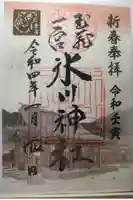 新春奉拝
令和壬寅
武蔵
一宮
氷川神社
令和四年一月
日